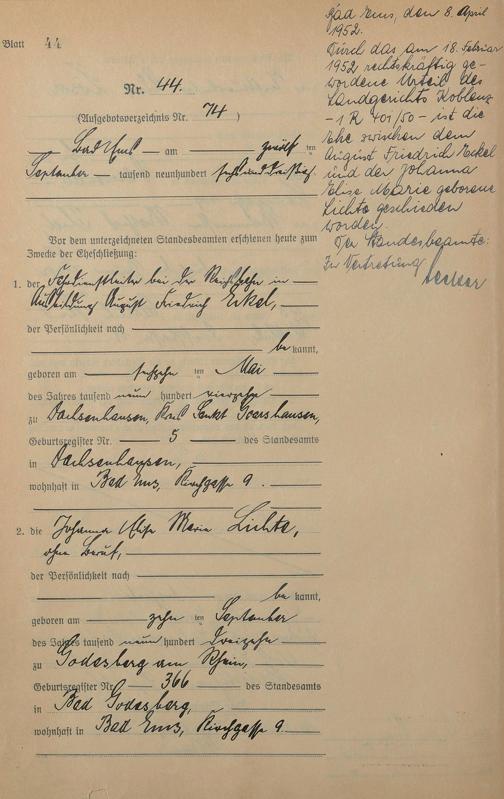 Blatt 44
Nr. 44.
(Aufgebotsverzeichnis Nr. 74)
Bad Ems, am zwölf ten
September tausend neunhundert sechsunddreißig.
Vor dem unterzeichneten Standesbeamten erschienen heute zum
Zwecke der Eheschließung:
1. der Fahrdienstleiter bei der Reichsbahn in
Ausbildung August Friedrich Eckel,
der Persönlichkeit nach
be kannt,
geboren am sechzehn ten Mai
des Jahres tausend neun hundert vierzehn
zu Dachsenhausen, Kreis Sankt Goarshausen,
Geburtsregister Nr. 5 des Standesamts
in Dachsenhausen,
wohnhaft in Bad Ems, Kirchgasse 9.
2. die Johanna Elise Marie Lichte,
ohne Beruf,
der Persönlichkeit nach
be kannt,
geboren am zehn ten September
des Jahres tausend neun hundert dreizehn
zu Godesberg am Rhein,
Geburtsregister Nr. 366 des Standesamts
in Bad Godesberg,
wohnhaft in Bad Ems, Kirchgasse 9.
Bad Ems, den 8. April
1952.
Durch das am 18. Februar
1952 rechtskräftig ge-
wordene Urteil des
Landgerichts Koblenz
- 1 R 401/50 - ist die
Ehe zwischen dem
August Friedrich Eckel
und der Johanna
Elise Marie geborene
Lichte geschieden
worden.
Der Standesbeamte:
In Vertretung